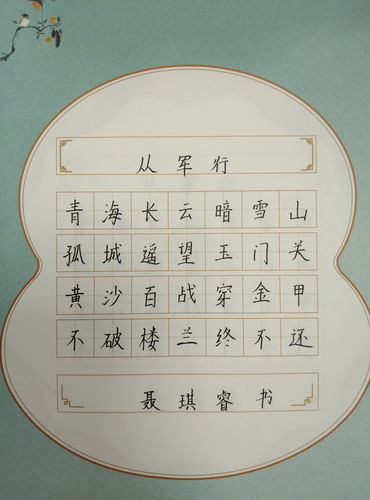 从军行
青海长云暗雪山
孤城遥望玉门关
黄沙百战穿金甲
不破楼兰终不还
聂琪睿书